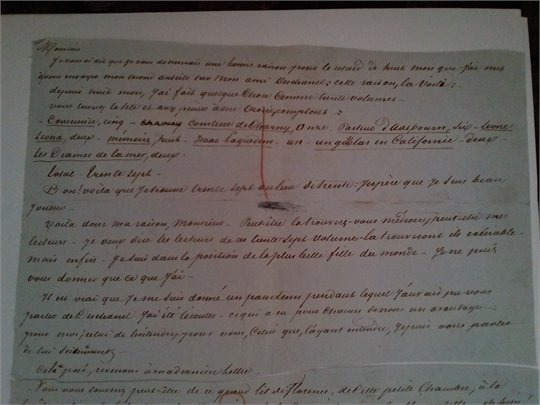 Monsieur
Je vous ai dit que je vous donnerais une bonne raison pour le retard de huit mois que j'ai mis
à vous envoyer mon second article sur mon ami Deschanel; cette raison, la voilà:
depuis huit mois, j'ai fait quelque chose comme trente volumes.
vous vous et aux peine à me croire, comptons:
- Conscience, cinq - Comtesse de Charny, onze, Pasteur d'Ashbourn, six - Leone
Leona, deux - mémoires, huit - Isaac Laquedem - un - un gil blas en Californie - deux
Les Drames de la mer, deux.
total - trente sept -
Bon! voilà que je trouve trente sept au lieu de trente: j'espère que je suis beau
joueur -
Voilà donc ma raison, Monsieur - Peut-être la trouverez-vous médiocre; peut-être mes
lecteurs - je veux dire les lecteurs de ces trente sept volumes - la trouveront ils exécrable -
mais enfin - je suis dans la position de la plus belle fille du monde - Je ne puis
vous donner que ce que j'ai -
Il est vrai que je me suis donné un pendant lequel j'aurais pu vous
parler de Deschanel j'ai été écouter - ce qui a eu pour chacun de nous un avantage -
pour moi, celui de l'entendre; pour vous, celui que, l'ayant entendu, je puis vous parler
de lui
Cela posé, revenons à ma dernière lettre
- Vous vous souvenez peut-être de ce grand lit de Florence, de cette petite chambre, à la